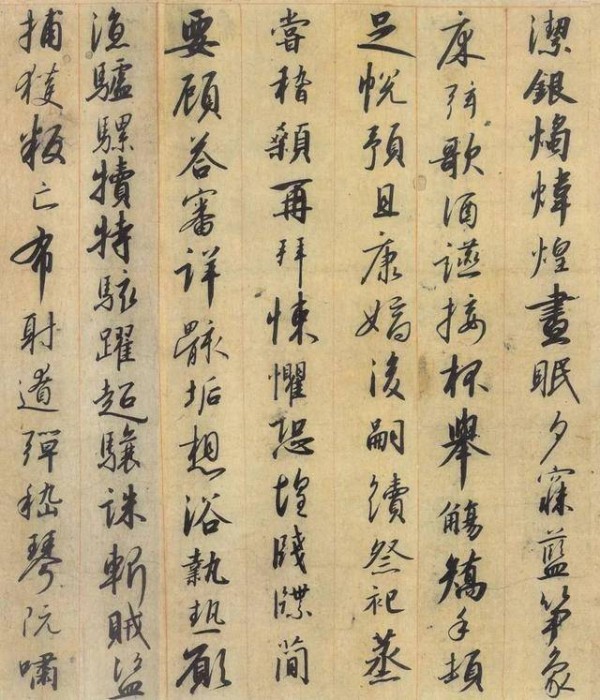 潔銀燭煒煌晝眠夕寐藍筍象
床弦歌酒讌接杯舉觴矯手頓
足悅預且康嫡後嗣續祭祀蒸
嘗稽顙再拜悚懼恐惶牋牒簡
要顧答審詳骸垢想浴執熱願
涼驢騾犢特駭躍超驤誅斬賊盜
捕獲叛亡布射遼彈嵇琴阮嘯